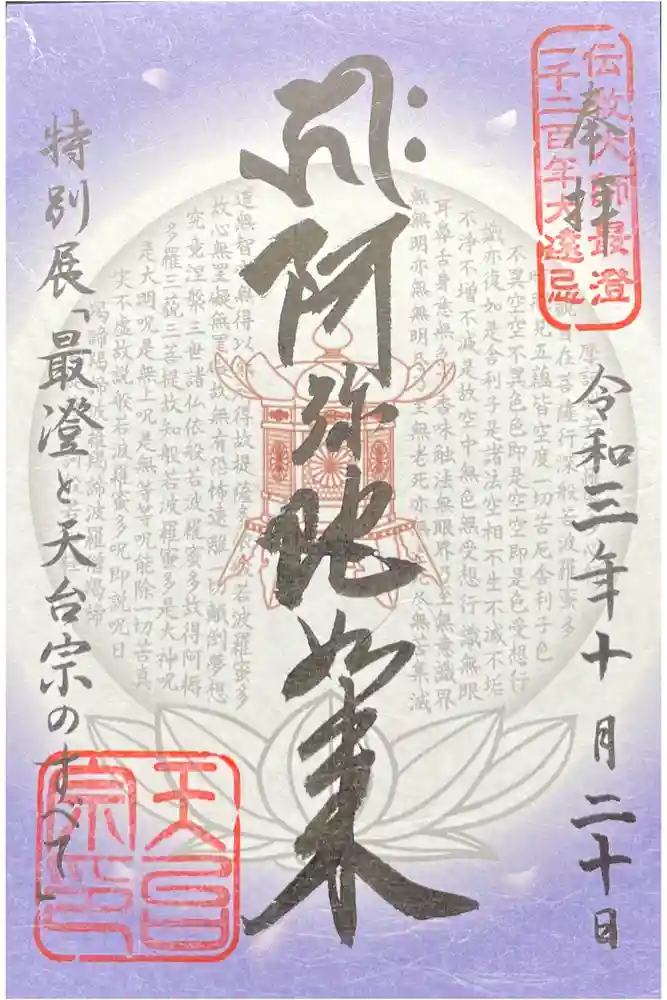 伝教大師最澄
一千二百年大遠忌
奉拝
令和三年十月二十日
阿弥陀如来
特別展「最澄と天台宗のすべて」
天台
宗印
自在菩薩行深般若波羅蜜多
見五蘊皆空度一切苦厄舎利子色
不異空空不異色色即是空空即是色受想行
識亦復如是舎利子是諸法空相不生不滅不垢
不浄不増不減是故空中無色無受想行識無眼
耳鼻舌身意無色香味触法無眼界至無意識界
無無明亦無無明至無老死亦無尽無苦集滅
道無智無得以得故提薩若波羅蜜多
故心無罣礙無罣故無有恐怖遠離切顛倒夢想
究竟涅槃三世諸仏依般若波羅蜜多故得阿耨
多羅三藐三菩提故知般若波羅蜜多是大神呪
是大明呪是無上呪是無等等呪能除一切苦真
実不虚故説般若波羅蜜多呪即説呪曰
羯諦羯諦波羅羯諦波羅僧羯諦